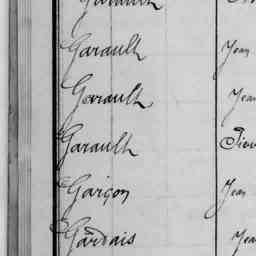 Garault
Garault Jean
Garault Jean
Garault
Garçon Jean
Gardais Jean